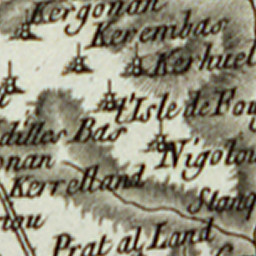 Kergonan
Kerembas
Kerhuel
l'Isle de Fou
dilles Bas
Nigolou
onan
Kerrelland
Stanq
iou
Prat al Land